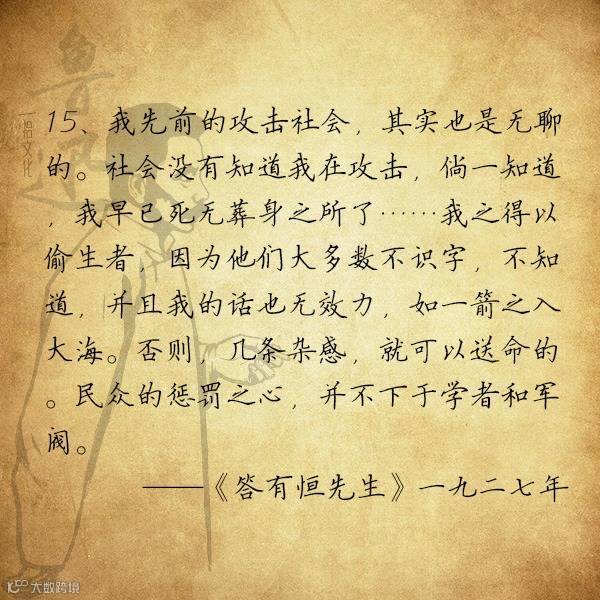 鲁迅
一语文化
15、我先前的攻击社会，其实也是无聊
的。社会没有知道我在攻击，倘一知道
，我早已死无葬身之所了……我之得以
偷生者，因为他们大多数不识字，不知
道，并且我的话也无效力，如一箭之入
大海。否则，几条杂感，就可以送命的
。民众的惩罚之心，并不下于学者和军
阀。
——《答有恒先生》一九二七年
大数跨境